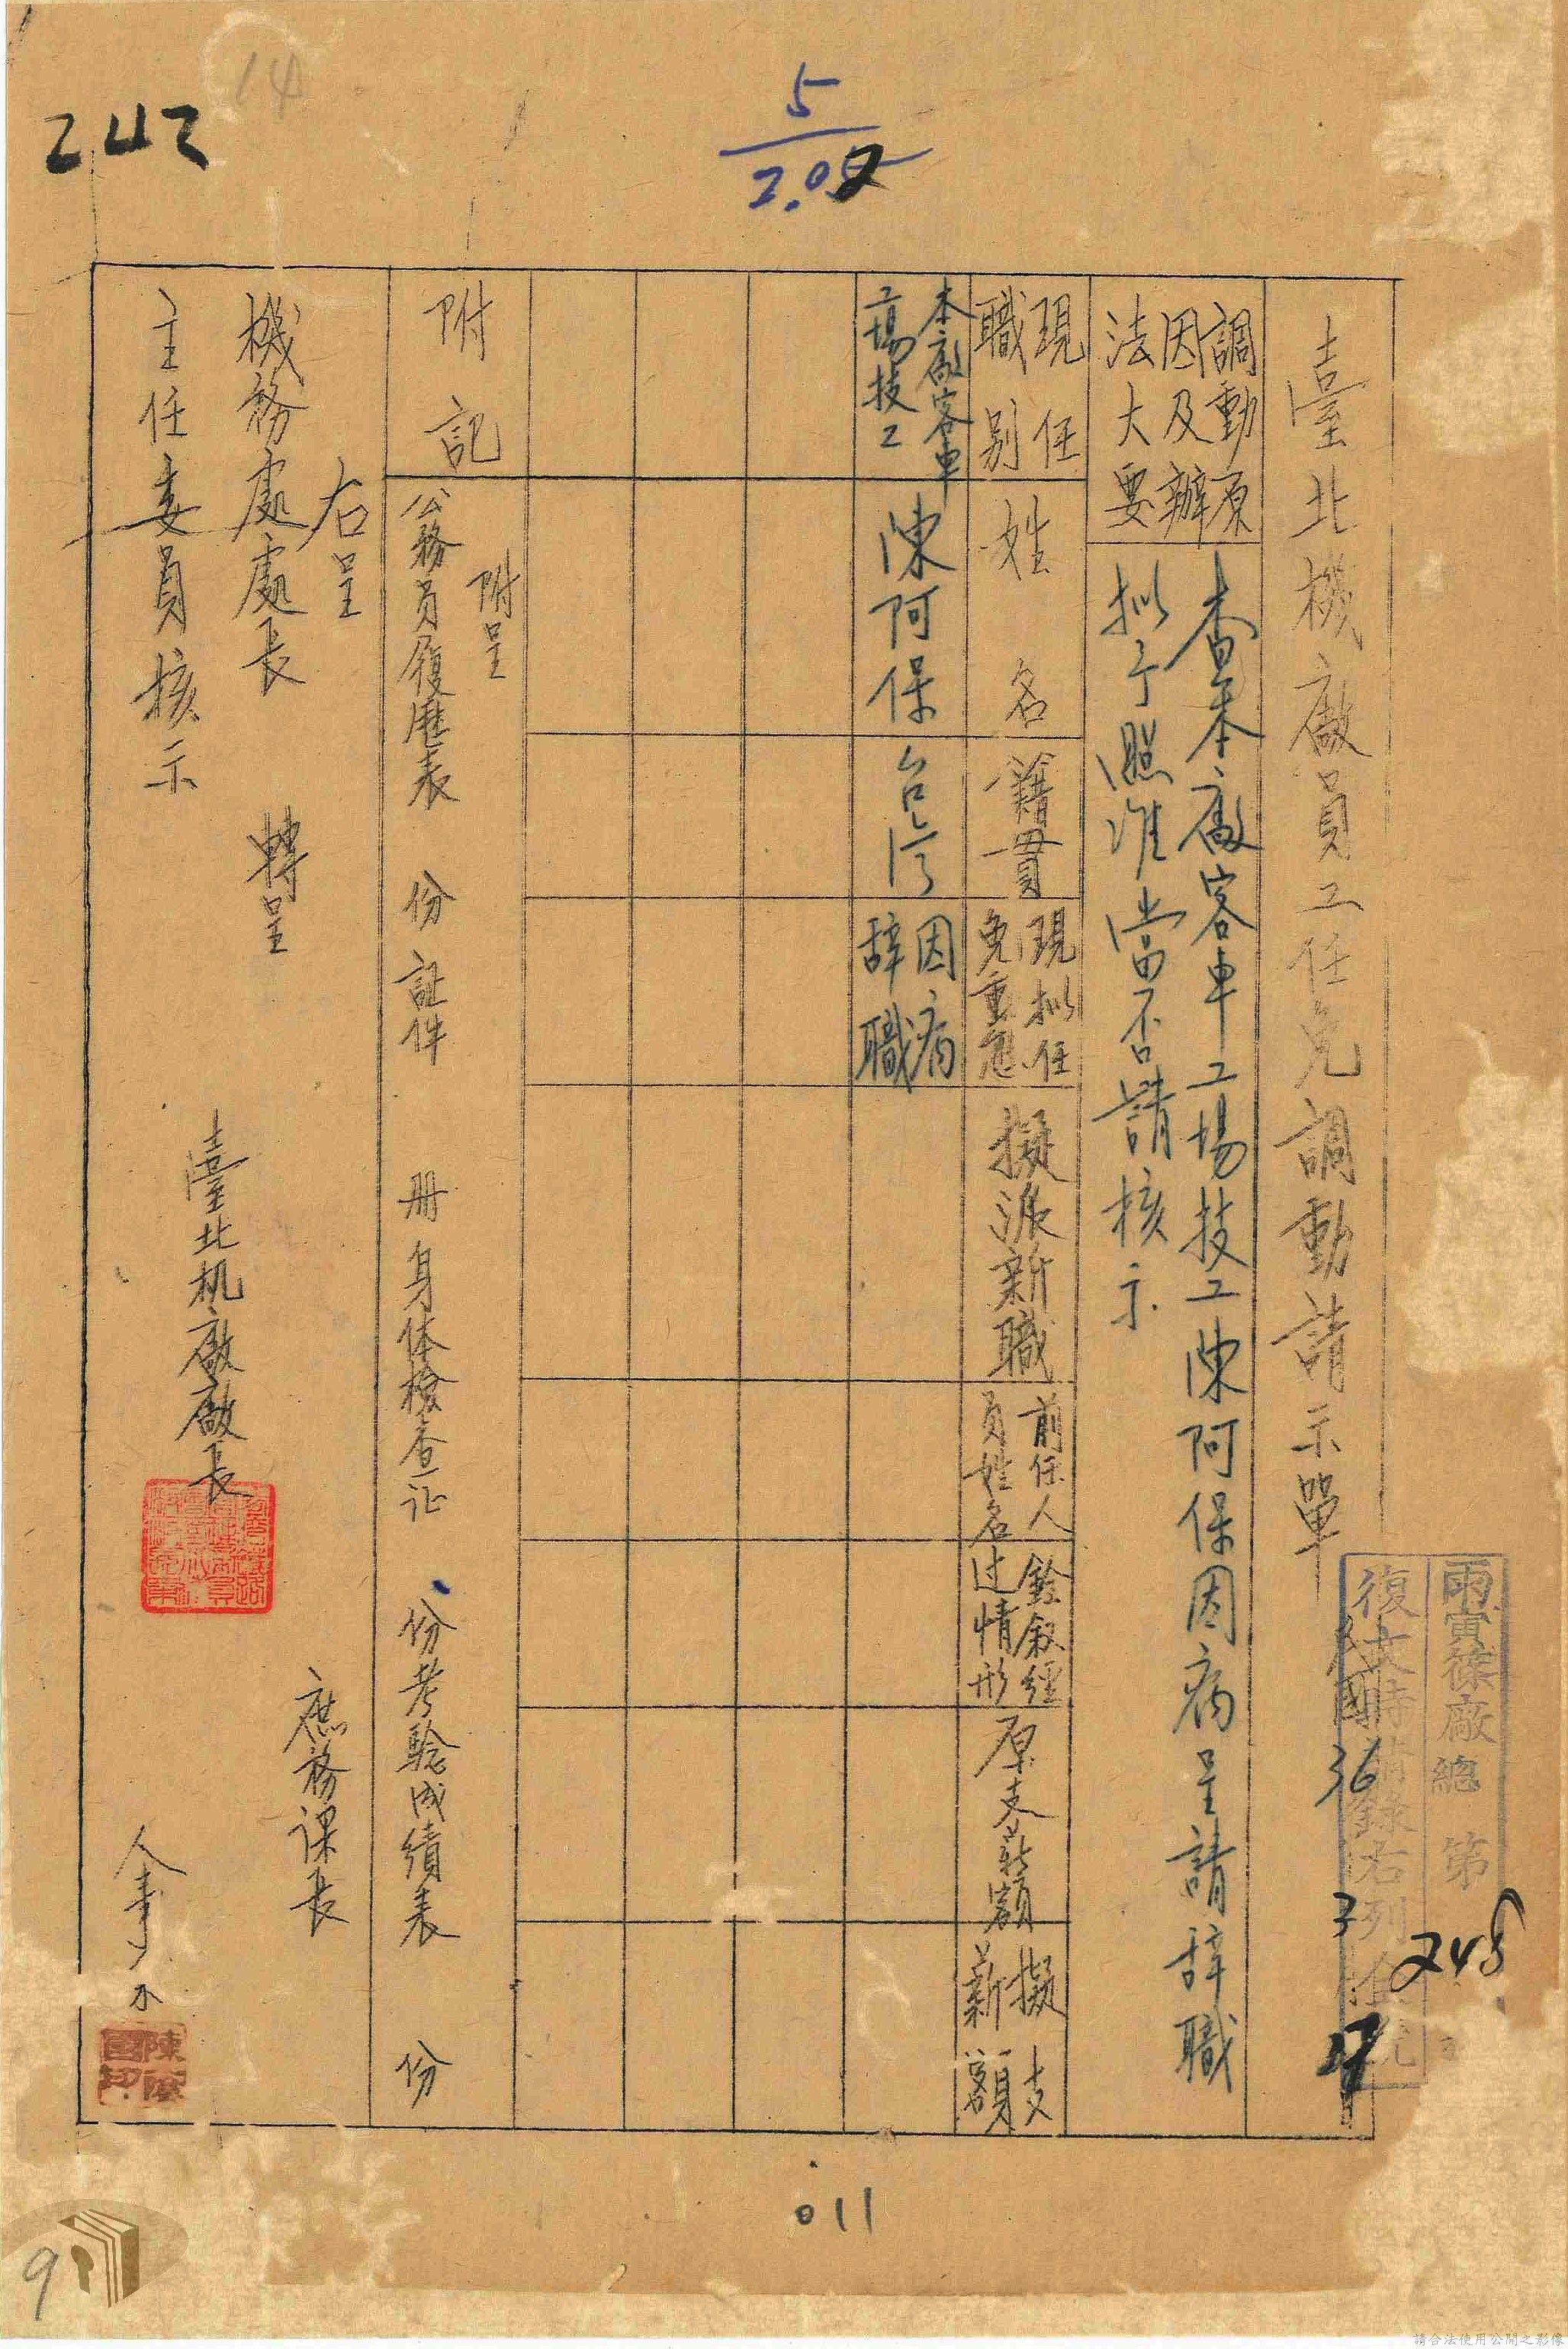 14
242
5
2.02
雨寅篠廠總 第 248
復文時請錄右列 號
民國36 3 17
臺北機廠員工任免調動請示單
調動原
因及辦
法大要
查本廠客車工場技工陳阿保因病呈請辞職
拟予照准当否請核示
現任
職別
姓名
籍貫
現拟任
免重懲
擬派新職
前任人
員姓名
銓叙經
过情形
原支薪額
擬支
薪額
本廠客車
工場技工
陳阿保
台湾
因病
辞職
附記
附呈
公務員履歷表 份 証件 册 身体檢查证 份 考驗成績表 份
右呈
機務處處長 轉呈
主任委員核示
臺北机廠廠長
庶務課長
人事
011
9
請合法使用公開之影像